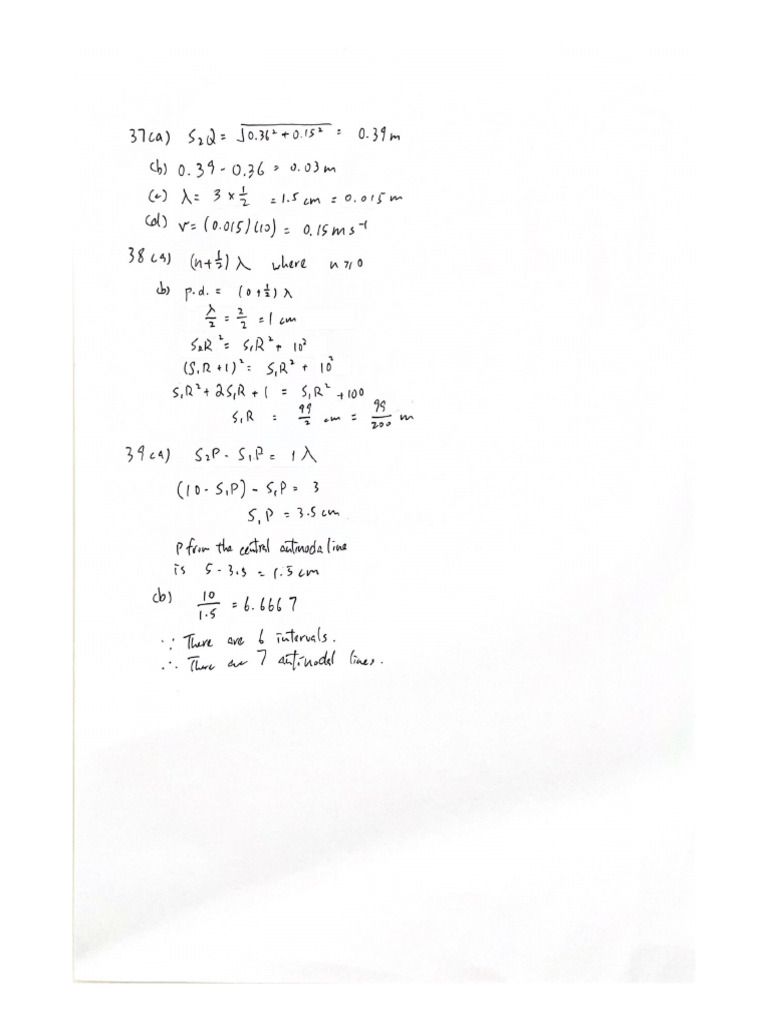 37(a) S₂Q = √0.36² + 0.15² = 0.39 m
(b) 0.39 - 0.36 = 0.03 m
(c) λ = 3 × 1/2 = 1.5 cm = 0.015 m
(d) v = (0.015)(10) = 0.15 m s⁻¹
38(a) (n + 1/2) λ where n ≥ 0
(b) p.d. = (0 + 1/2) λ
λ/2 = 2/2 = 1 cm
S₂R² = S₁R² + 10²
(S₁R + 1)² = S₁R² + 10²
S₁R² + 2S₁R + 1 = S₁R² + 100
S₁R = 99/2 cm = 99/200 m
39(a) S₂P - S₁P = 1 λ
(10 - S₁P) - S₁P = 3
S₁P = 3.5 cm
P from the central antinoda line
is 5 - 3.5 = 1.5 cm
(b) 10/1.5 = 6.6667
∵ There are 6 intervals.
∴ There are 7 antinodal lines.